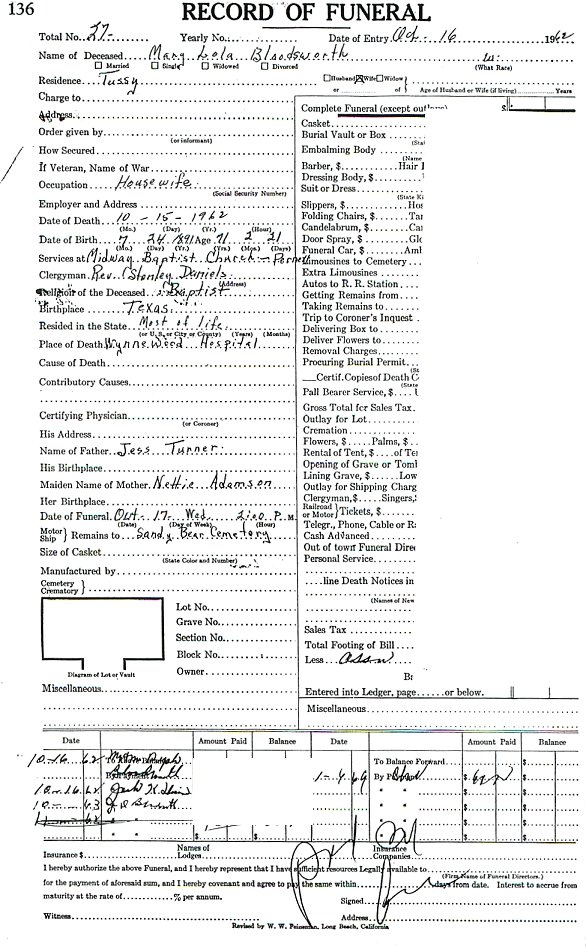 136
RECORD OF FUNERAL
Total No. 27 Yearly No. Date of Entry Oct. 16 1962
Name of Deceased Mary Lola Bloodsworth W.
Married Single Widowed Divorced (What Race)
Residence Tussy Husband Wife Widow
or of Age of Husband or Wife (if living) Years
Charge to
Address
Order given by
(or informant)
How Secured
If Veteran, Name of War
Occupation Housewife
(Social Security Number)
Employer and Address
Date of Death 10 - 15 - 1962
(Mo.) (Day) (Yr.) (Hour)
Date of Birth 7 24 1891 Age 71 2 21
(Mo.) (Day) (Yr.) (Yrs.) (Mos.) (Days)
Services at Midway Baptist Church -
Clergyman Rev. Stanley Daniels
(Address)
of the Deceased Baptist
Birthplace Texas
Resided in the State Most of life
(or U. S., or City or County) (Years) (Months)
Place of Death Wynnewood Hospital
Cause of Death
Contributory Causes
Certifying Physician
(or Coroner)
His Address
Name of Father Jess Turner
His Birthplace
Maiden Name of Mother Nettie Adamson
Her Birthplace
Date of Funeral Oct. 17 Wed. 2:00 P. M
(Date) (Day of Week) (Hour)
Motor Ship Remains to Sandy Bear Cemetery
Size of Casket
(State Color and Number)
Manufactured by
Cemetery
Crematory
Lot No.
Grave No.
Section No.
Block No.
Owner
Diagram of Lot or Vault
Miscellaneous
Complete Funeral (except $
Casket
Burial Vault or Box
(Sta
Embalming Body
(Name
Barber, $ Hair
Dressing Body, $
Suit or Dress
(State Ki
Slippers, $ Hos
Folding Chairs, $ Tar
Candelabrum, $ Ca
Door Spray, $ Glo
Funeral Car, $ Aml
Limousines to Cemetery
Extra Limousines
Autos to R. R. Station
Getting Remains from
Taking Remains to
Trip to Coroner's Inquest
Delivering Box to
Deliver Flowers to
Removal Charges
Procuring Burial Permit
(St
Certif. Copies of Death C
(State
Pall Bearer Service, $
Gross Total for Sales Tax
Outlay for Lot
Cremation
Flowers, $ Palms, $
Rental of Tent, $ of Te
Opening of Grave or Toml
Lining Grave, $ Low
Outlay for Shipping Charg
Clergyman, $ Singers,
Railroad or Motor Tickets, $
Telegr., Phone, Cable or R
Cash Advanced
Out of town Funeral Dire
Personal Service
line Death Notices in
(Names of New
Sales Tax
Total Footing of Bill
Less Assn
B
Entered into Ledger, page or below.
Miscellaneous
Date Amount Paid Balance Date Amount Paid Balance
10-16 62 To Balance Forward
1-4 69 By P $
10-16-62
10- 63
Insurance $ Names of Lodges Insurance Companies
I hereby authorize the above Funeral, and I hereby represent that I have sufficient resources Legally available to
(Firm Name of Funeral Directors.)
for the payment of aforesaid sum, and I hereby covenant and agree to pay the same within days from date. Interest to accrue from
maturity at the rate of % per annum. Signed
Witness Address
Revised by W. W. Feineman, Long Beach, California